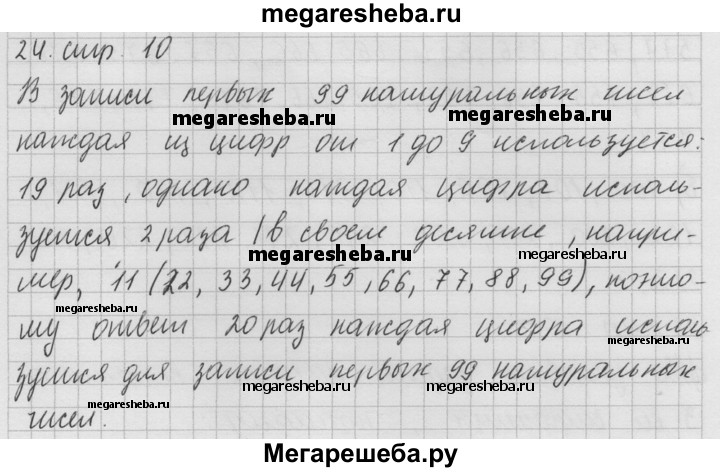 megaresheba.ru
24. стр. 10
В записи первых 99 натуральных чисел
megaresheba.ru
megaresheba.ru
каждая из цифр от 1 до 9 используется:
19 раз, однако каждая цифра исполь-
зуется 2 раза /в своем десятке, напри-
megaresheba.ru
мер, 11 (22, 33, 44, 55, 66, 77, 88, 99), поэто-
megaresheba.ru
му ответ 20 раз каждая цифра исполь
megaresheba.ru
зуется для записи первых 99 натуральных
megaresheba.ru
megaresheba.ru
megaresheba.ru
чисел.
Мегарешеба.ру